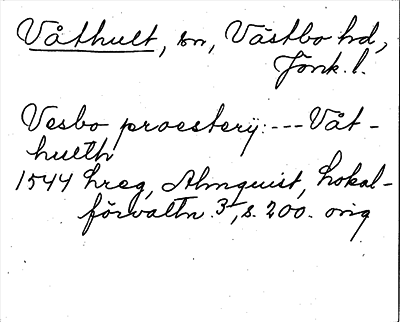 Våthult, sn, Västbo hd,
Jönk. l.
Vesbo proesterij: --- Våt-
hulth
1544 hreg, Almquist, Lokal-
förvaltn. 3, s. 200. orig